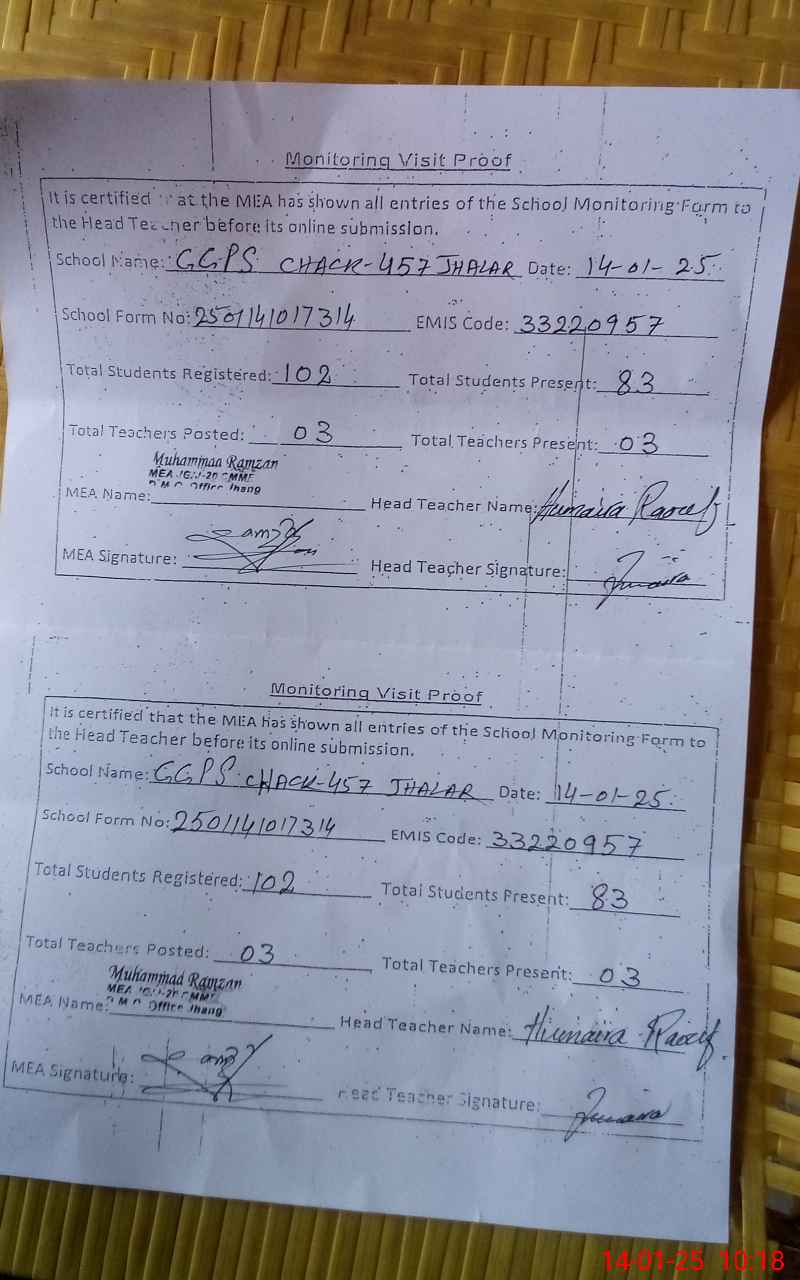 Monitoring Visit Proof
It is certified that the MEA has shown all entries of the School Monitoring Form to
the Head Teacher before its online submission.
School Name: GGPS CHACK-457 JHALAR Date: 14-01-25
School Form No: 2501141017314 EMIS Code: 33220957
Total Students Registered: 102 Total Students Present: 83
Total Teachers Posted: 03 Total Teachers Present: 03
Muhammad Ramzan
MEA
Office Jhang
MEA Name: Head Teacher Name: Humaira Raoof
MEA Signature: Head Teacher Signature: Humaira
Monitoring Visit Proof
It is certified that the MEA has shown all entries of the School Monitoring Form to
the Head Teacher before its online submission.
School Name: GGPS CHACK-457 JHALAR Date: 14-01-25.
School Form No: 2501141017314 EMIS Code: 33220957
Total Students Registered: 102 Total Students Present: 83
Total Teachers Posted: 03 Total Teachers Present: 03
Muhammad Ramzan
MEA
Office Jhang
MEA Name: Head Teacher Name: Humaira Raoof
MEA Signature: Head Teacher Signature: Humaira
14-01-25 10:18